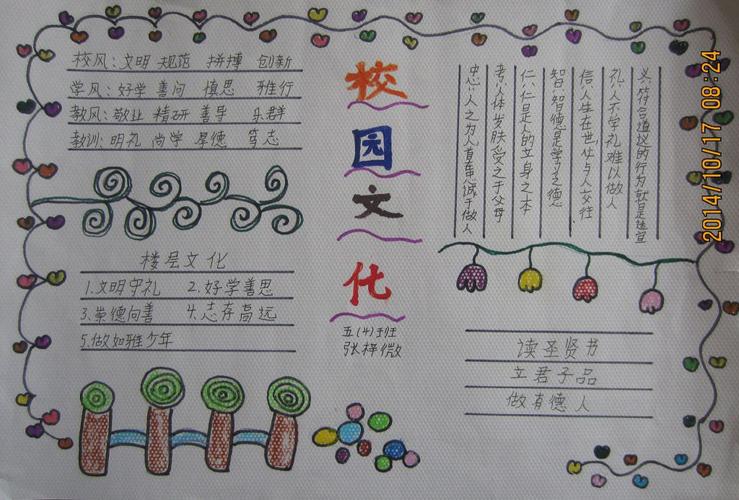 校风：文明 规范 拼搏 创新
学风：好学 善问 慎思 雅行
教风：敬业 精研 善导 乐群
教训：明礼 尚学 厚德 笃志
楼层文化
1.文明守礼 2.好学善思
3.崇德向善 4.志存高远
5.做如雅少年
校园文化
五(4)班
张梓微
义：符合道议的行为就是适宜
礼：人不学礼难以做人
信：人生在世仕与人交往
智：智德是学习之德
仁：仁是人的立身之本
孝：人体发肤受之于父母
忠：人之为人首忠诚于做人
读圣贤书
立君子品
做有德人
2014/10/17 08:24